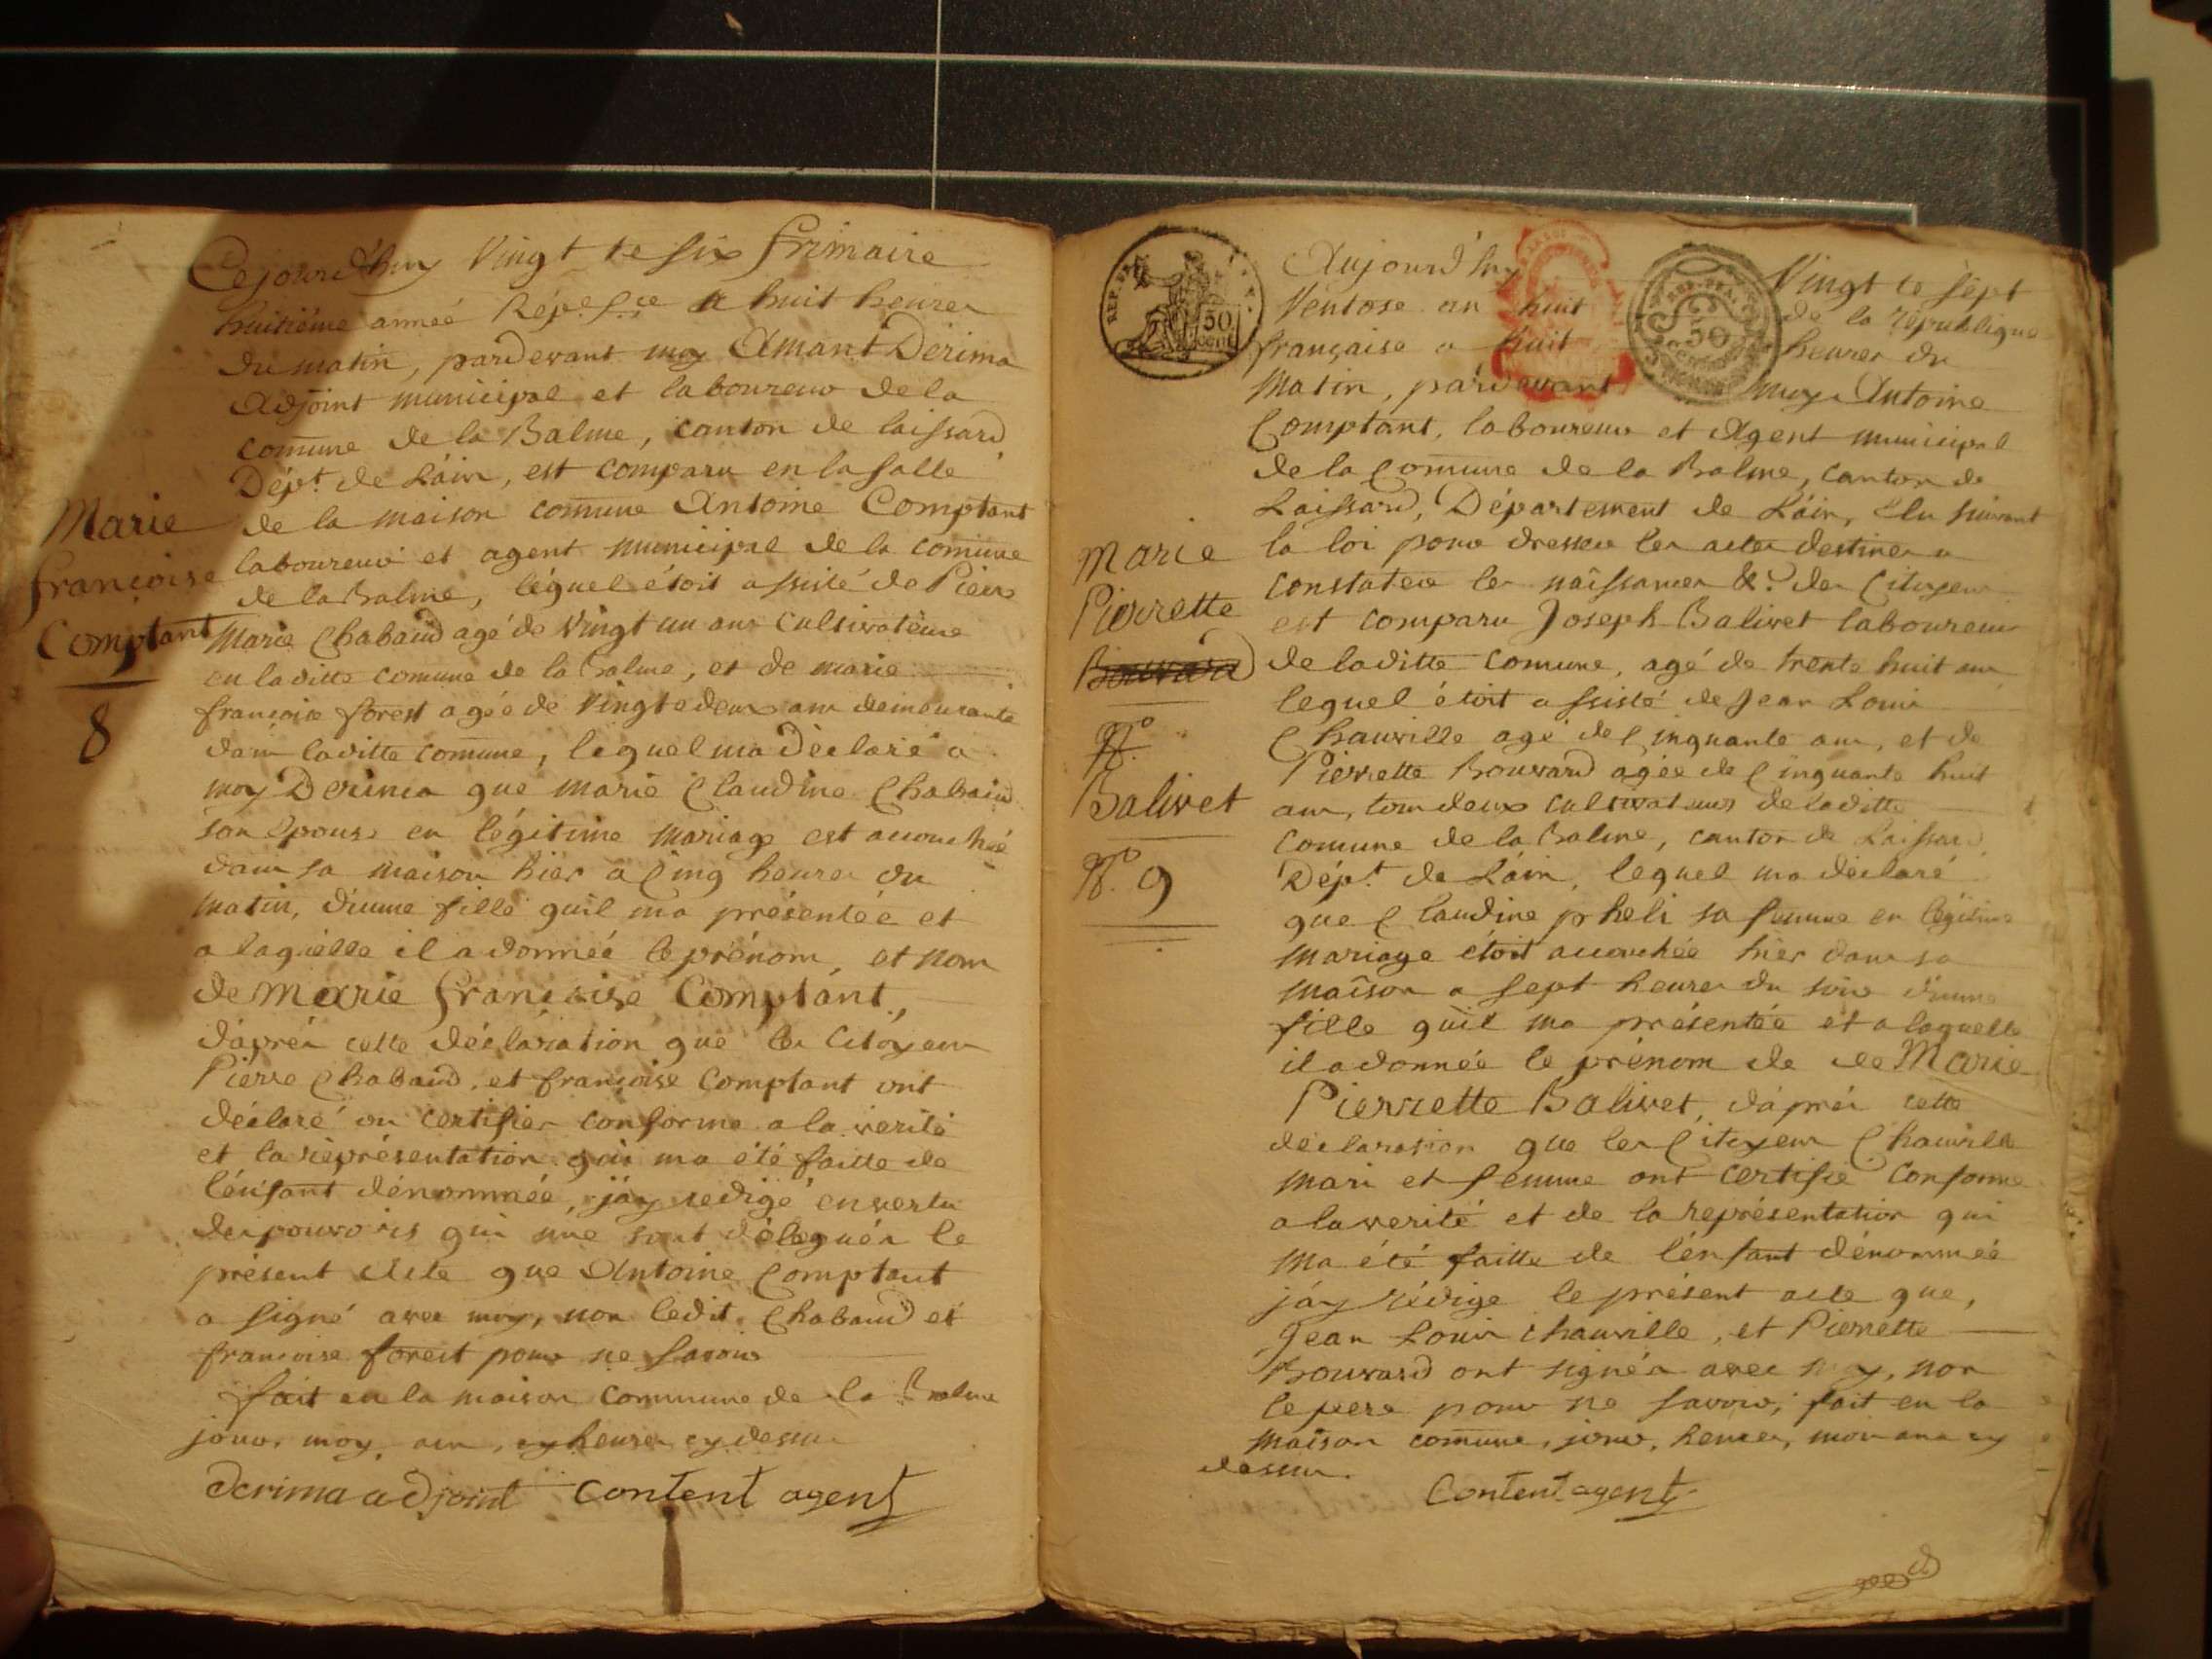 Cejourd'huy Vingt te six frimaire
huitiéme année Répe. fçe a huit heures
du matin, pardevant moy Amant Derima
Adjoint municipal et laboureur de la
comune de la Balme, canton de laissard
Dépt. de Láin, est comparu en la salle
de la maison comune Antoine Comptant
laboureur et agent municipal de la comune
de la Balme, léquel étoit assisté de Pierre
Marie Chabaud agé de vingt un ans Cultivateure
en laditte comune de la Balme, et de marie
françoise forest agée de vingtedeux ans demeurante
dans laditte comune, lequel ma déclaré a
moy Derima que marie Claudine Chabaud
son épouse en légitime mariage est acouchée
dans sa maison hier a Cinq heures du
matin, d'iune fille quil ma présentée et
a laquélle il a donnée le prénom, et nom
de Marie françoise Comptant,
dáprés cette déclaration que les Citoyens
Pierre Chabaud, et françoise Comptant ont
déclaré ou certifier conforme a la verité
et la réprésentation qui ma été faitte de
lénfant dénommée, jáy redigé en vertu
des pouvoirs qui me sont délégués le
présent Acte que Antoine Comptant
a signé avec moy, non ledit Chabaud et
francoise forest pour ne savoir
fait en la maison commune de la Balme
jour, moy, an, ey heures ey dessu
derima adjoint content agent
Marie
françoise
Comptant
8
REP. FRA.
50
cent.
REP. FRA.
50
Aujourd'huy Vingt te sépt
Ventose an huit de la république
française a huit heures du
Matin, pardevant moy Antoine
Comptant, laboureur et Agent municipal
de la Comune de la Balme, canton de
Laissard, Département de Láin, Elu suivant
la loi pour dresser les actes destines a
constater les naîssances &c. des Citoyens
est comparu Joseph Balivet laboureur
de laditte comune, agé de trente huit ans
lequel étoit assisté de Jean Louis
Chauville agé de Cinquante ans, et de
Pierrette Bouvard agée de Cinquante huit
ans, tous deux cultivateurs de laditte
comune de la Balme, canton de Laissard
Dépt. de Láin, lequel ma déclaré
que Claudine pheli sa femme en légitime
mariage étoit acouchée hier dans sa
maîson a sept heures du soir d'iune
fille quil ma présentée et a laquelle
il a donnée le prénom de de Marie
Pierrette Balivet, dáprés cette
déclaration que les Citoyens Chauville
mari et femme ont certifié conforme
a la verité et de la représentation qui
ma été faitte de lénfant dénommée
jáy rédige le présent acte que,
Jean Louis chauville, et Pierrette
Bouvard ont signés avec moy, non
le pere pour ne savoir, fait en la
maison comune, jour, heures, moi ans ey
dessu.
Content agent
Marie
Pierrette
Bouvard
N°.
Balivet
N°. 9